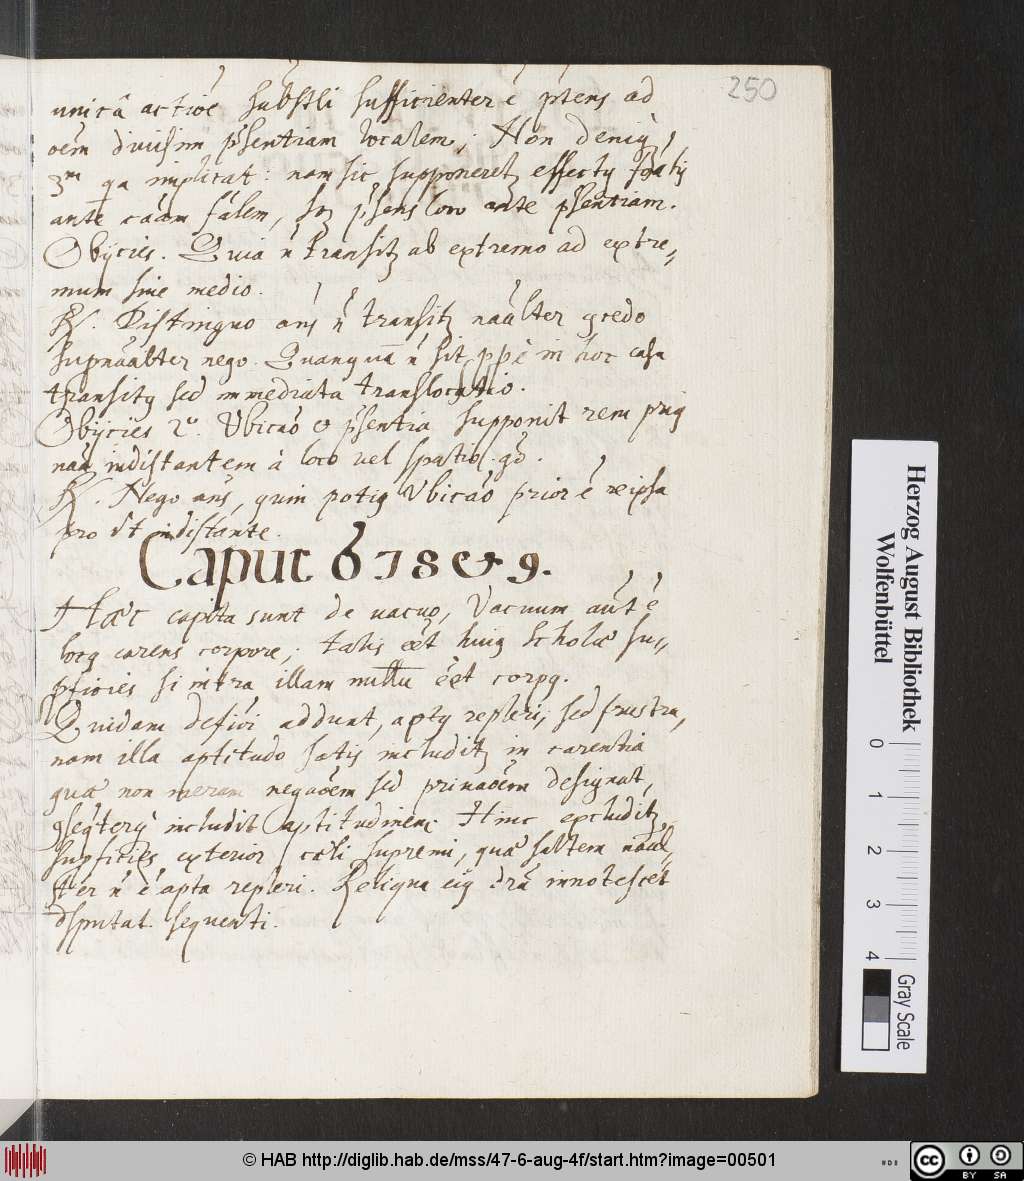 250
unicâ actiōe substli sufficienter ē pŕtens ad
oēm diuisim p̄sentiam localem; Non deniq;
3ᵐ qa implicat: nam sic supponeretʒ effectꝰ
ante cāam f̄alem, sʒ p̄sens loco ante p̄sentiam.
Obijcies. Quia n̄ transitʒ ab extremo ad extre=
mum sine medio.
R/. Distinguo ans n̄ transitʒ nāulter ꝯcedo
supnāalter nego. Quanquā n̄ sit ppē in hoc casu
transitꝰ sed immediata translocatio.
Obijcies 2º. Vbicāo & p̄sentia supponit rem priꝰ
nāa indistantem à loco vel spatio. gō.
R/. Nego ans, quin potiꝰ Vbicāo prior ē reipsa
pro vt indistante.
Caput 6 7 8 et 9.
Hæc capita sunt de uacuo, Vacuum aūt ē
locꝰ carens corpore, talis eēt huiꝰ scholæ su=
pficies si intra illam nullū eēt corpꝰ.
Quidam defiōi addunt, aptꝰ repleri, sed frustra,
nam illa aptitudo satis includitʒ in carentia
quæ non meram negaōem sed priuaōem designat,
ꝯseqterq includit aptitudinem. Hinc excluditʒ
supficies exterior cæli supremi, quæ saltem nāul=
ter n̄ ē apta repleri. Reliqua eiꝰ dr̄a innotescet
disputat. sequenti.
Herzog August Bibliothek
Wolfenbüttel
0 1 2 3 4
Gray Scale
© HAB http://diglib.hab.de/mss/47-6-aug-4f/start.htm?image=00501
HAB
cc BY SA